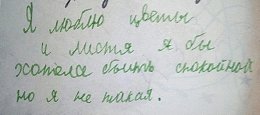 Я люблю цветы
и листя я бы
хотела быить спокойной
но я не такая.